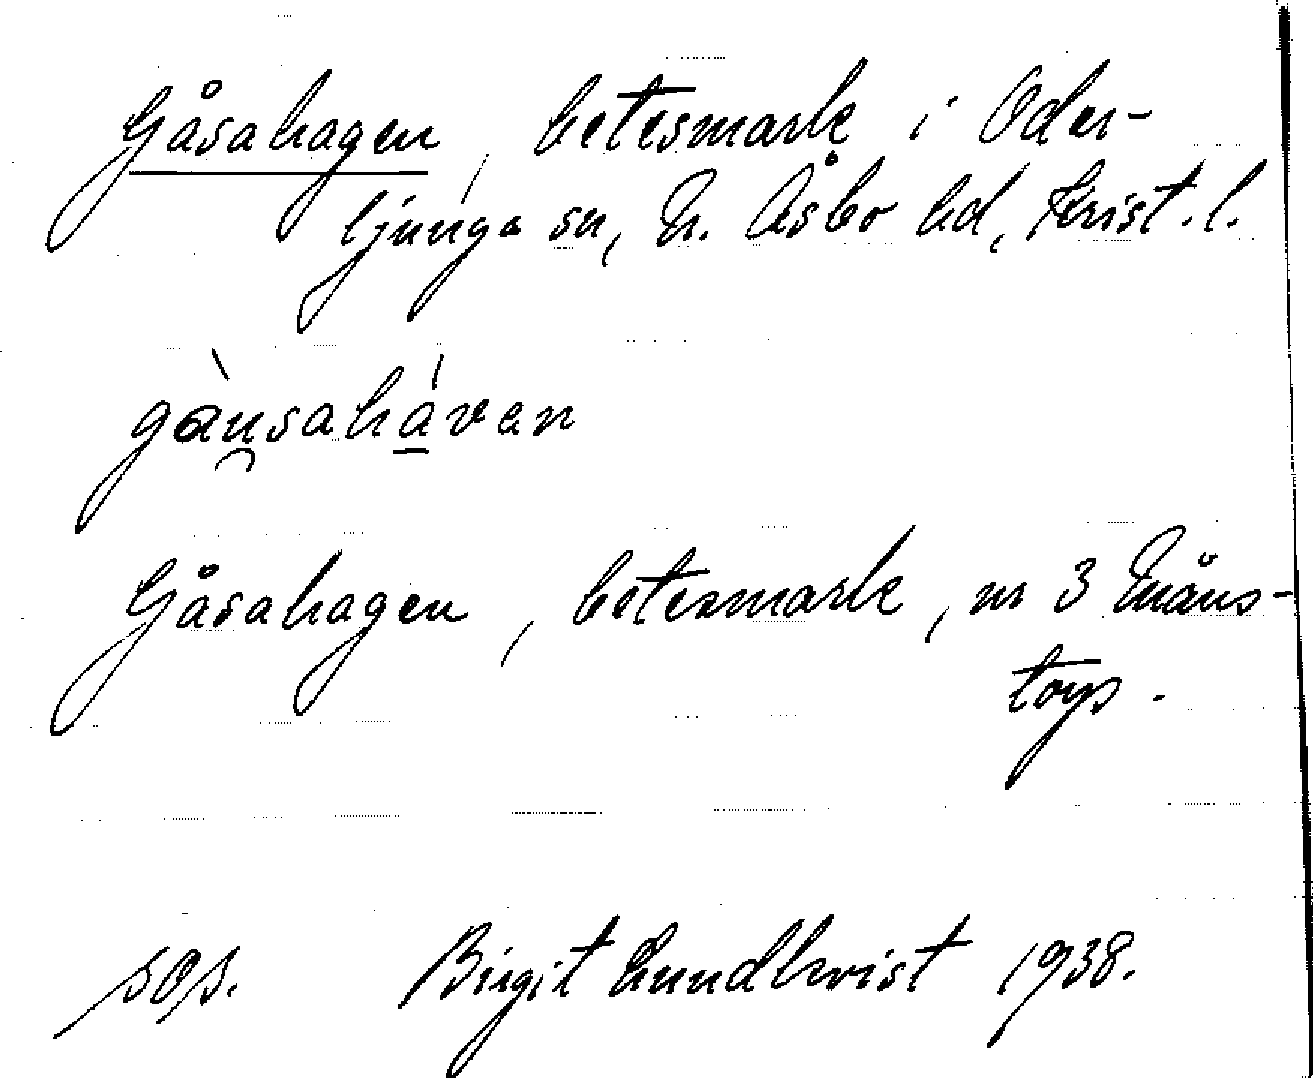 Gåsahagen, betesmark i Oder-
ljunga sn, N. Åsbo hd, Krist. l.
gàu̯sahá̱van
Gåsahagen, betesmark, nr 3 Måns-
torp.
sås. Birgit Lundkvist 1938.